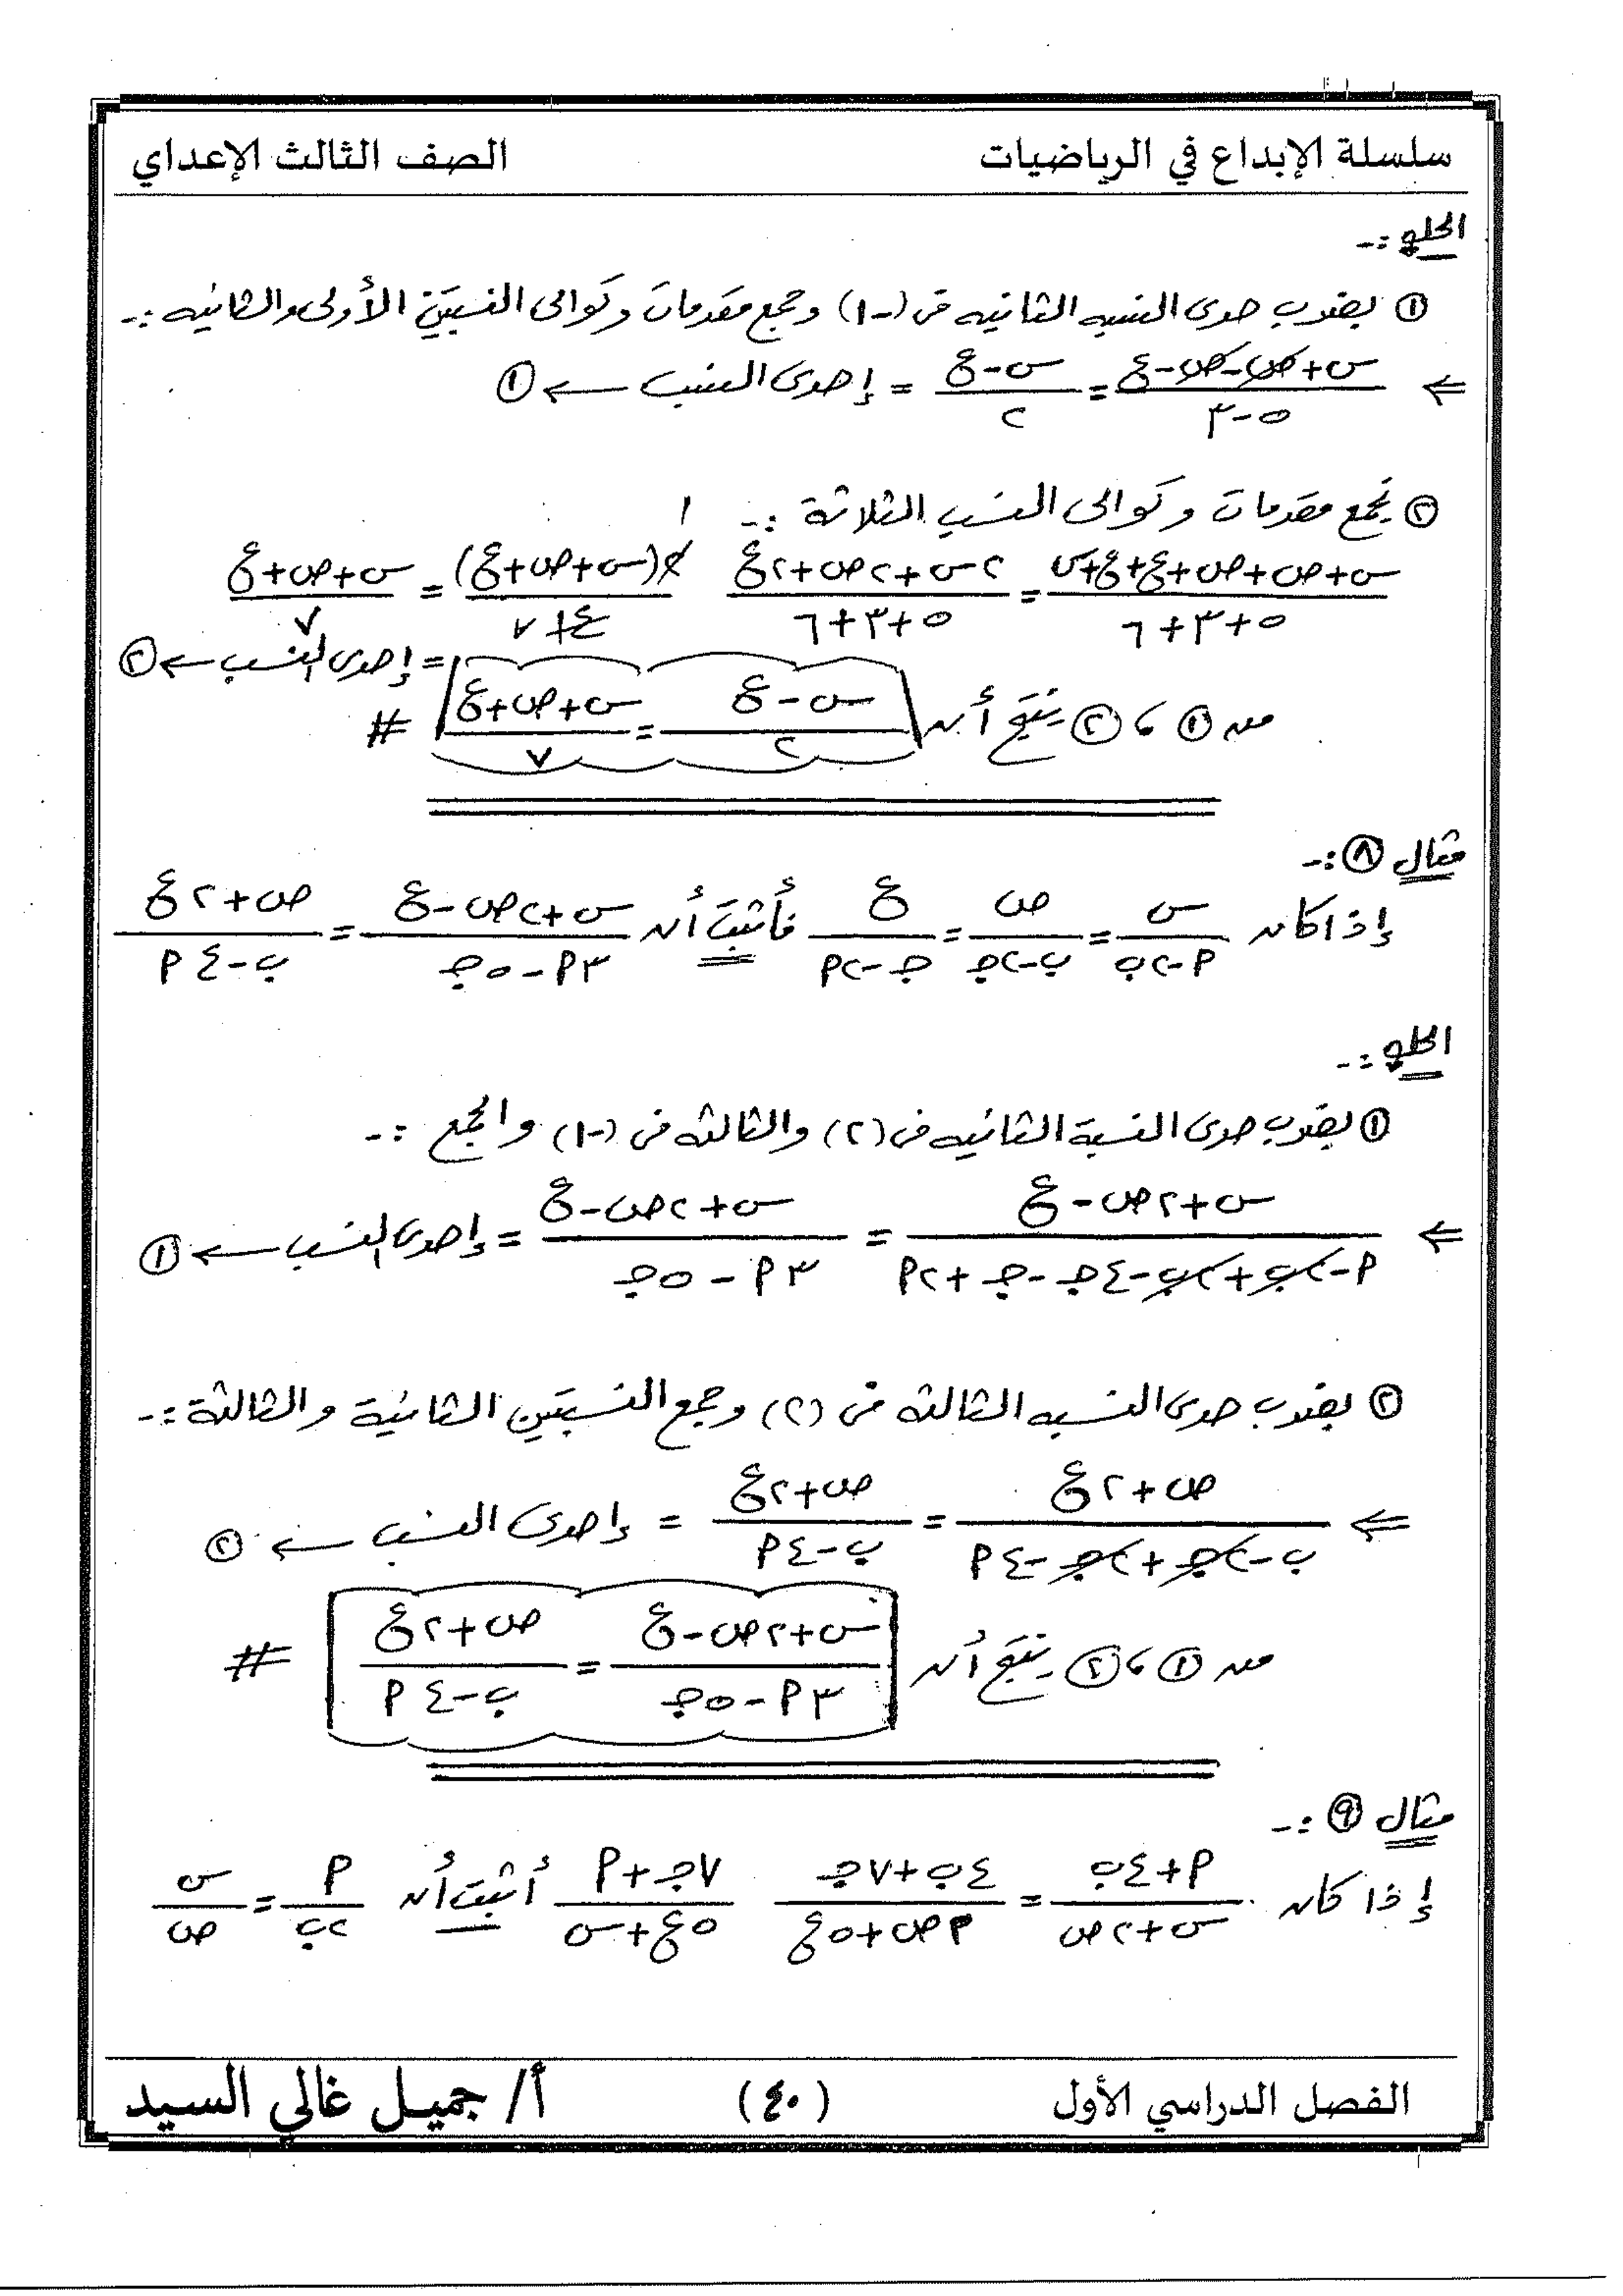 سلسلة الإبداع في الرياضيات الصف الثالث الإعداي
الحل :-
① بضرب حدى النسبه الثانيه فى (-١) وجمع مقدمات وتوالى النسبتين الأولى والثانيه :-
⇐ (س+ص-ص-ع)/(٥-٣) = (س-ع)/٢ = إحدى النسب ← ①
② بجمع مقدمات وتوالى النسب الثلاثة :-
(س+ص+ص+ع+ع+س)/(٥+٣+٦) = (٢س+٢ص+٢ع)/(٥+٣+٦) ١ ٢(س+ص+ع)/(١٤ ٧) = (س+ص+ع)/٧
= إحدى النسب ← ②
من ① ، ② ينتج أن (س-ع)/٢ = (س+ص+ع)/٧ #
مثال ⑧ :-
إذا كان س/(٢-أب) = ص/(ب-٢جـ) = ع/(جـ-٢أ) فأثبت أن (س+٢ص-ع)/(٣أ-٥جـ) = (ص+٢ع)/(ب-٤أ)
الحل :-
① بضرب حدى النسبة الثانيه فى (٢) والثالثه فى (-١) والجمع :-
⇐ (س+٢ص-ع)/(أ-٢ب+٢ب-٤جـ-جـ+٢أ) = (س+٢ص-ع)/(٣أ-٥جـ) = إحدى النسب ← ①
② بضرب حدى النسبه الثالثه فى (٢) وجمع النسبتين الثانية والثالثة :-
⇐ (ص+٢ع)/(ب-٢جـ+٢جـ-٤أ) = (ص+٢ع)/(ب-٤أ) = إحدى النسب ← ②
من ① ، ② ينتج أن (س+٢ص-ع)/(٣أ-٥جـ) = (ص+٢ع)/(ب-٤أ) #
مثال ⑨ :-
إذا كان (أ+٤ب)/(س+٢ص) = (٤ب+٧جـ)/(٢ص+٥ع) (٧جـ+أ)/(٥ع+س) أثبت أن أ/٢ب = س/ص
الفصل الدراسي الأول (٤٠) أ/ جميل غالي السيد